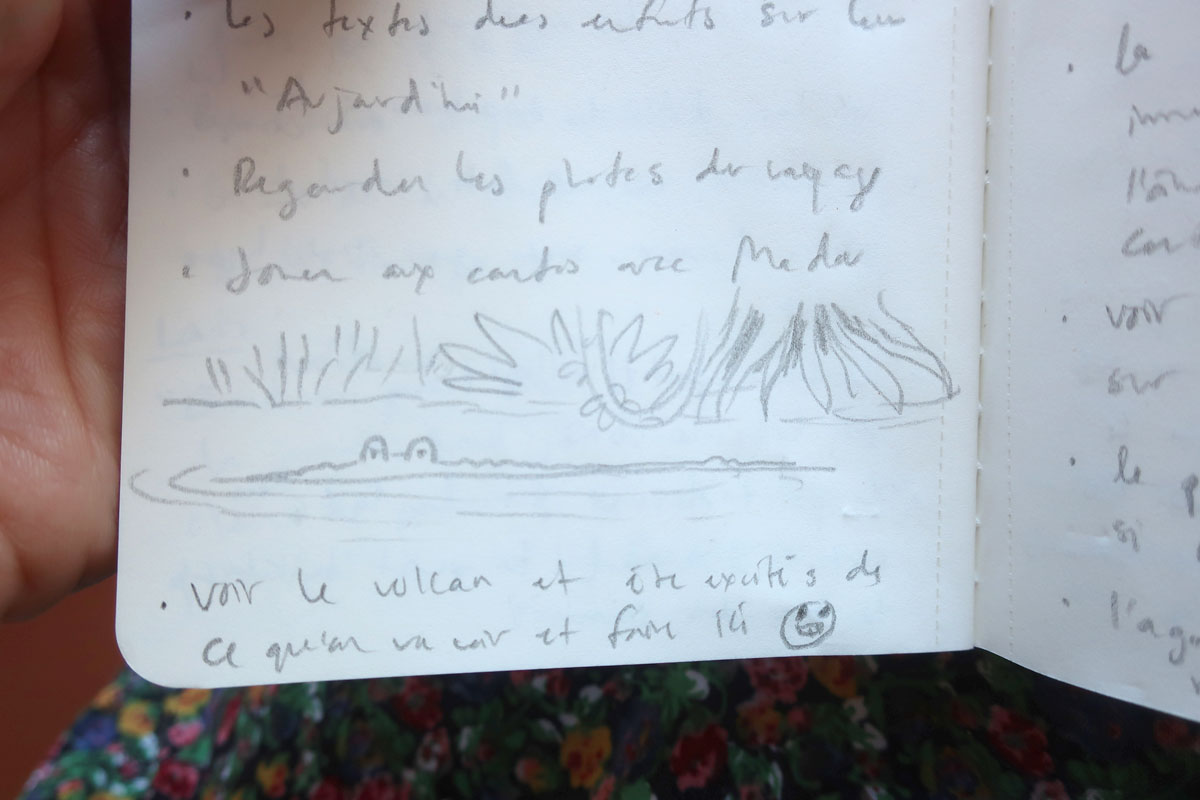 · Les textes des enfants sur leur
"Aujourd'hui"
· Regarder les photos du voyage
· Jouer aux cartes avec Mada
· voir le volcan et être excités de
ce qu'on va voir et faire ici
· la
· voir
sur
· le p
si